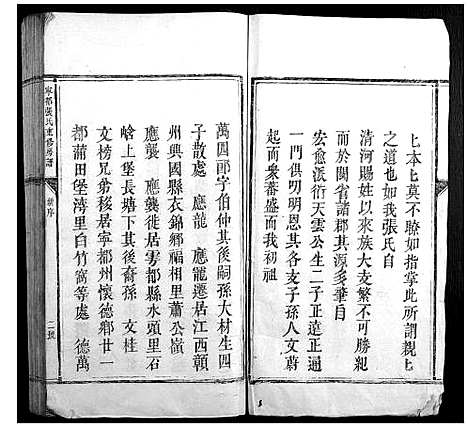 匕本匕莫不瞭如指掌此所謂親匕
之道也如我張氏自
清河賜姓以來族大支繁不可勝紀
而於閩省諸郡其源多肇自
宏愈派衍天雲公生二子正遠正通
一門俱叨明恩其各支子孫人文蔚
起而衆蕃盛而我初祖
寧都張氏重修房譜
舊序
二號
萬四郎字伯仲其後嗣孫大材生四
子散處　應龍　應寵遷居江西贛
州興國縣衣錦鄉福相里蕭公嶺
應襲　應龔徙居雩都縣水頭里石
崆上堡長塘下其後裔孫　文桂
文榜兄弟移居寧都州懷德鄉廿一
都蒲田堡灣里白竹窩等處　德萬